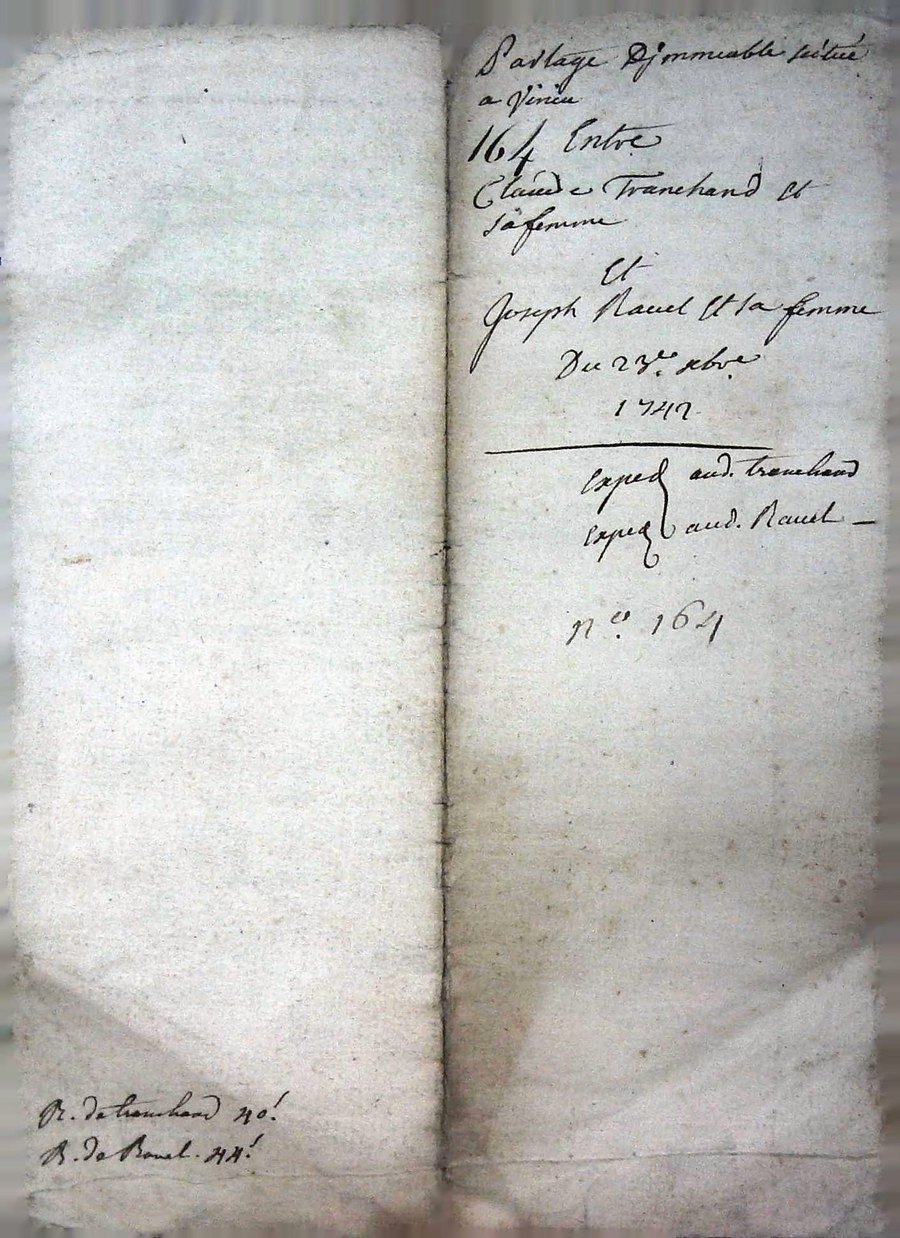 Partage D'jmmeuble scitué
a Virieu
164 Entre
Claude Tranchand Et
sa femme
Et
Joseph Ravel Et sa femme
Du 23.e xbre
1742
Exped aud. tranchand
Exped aud. Ravel —
n.o 164
R. de tranchand 40.s
R. de Ravel. 44.s